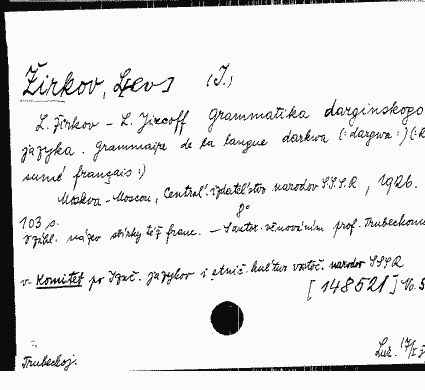 Žirkov, L[ev] (I.)
L. Žirkov – L. Jircoff Grammatika darginskogo
jazyka. Grammaire de la langue darkwa (:dargwa:) (:R
sumé français:)
Moskva - Moscou, Central'. izdatel'stvo narodov SSSR, 1926.
8°
103 s.
název sbírky též franc. – S autor. věnováním prof. Trubeckomu
v. Komitet po izuč. jazykov i etnič. kul'tur vostoč. narodov SSSR
[148521]
Trubeckoj.